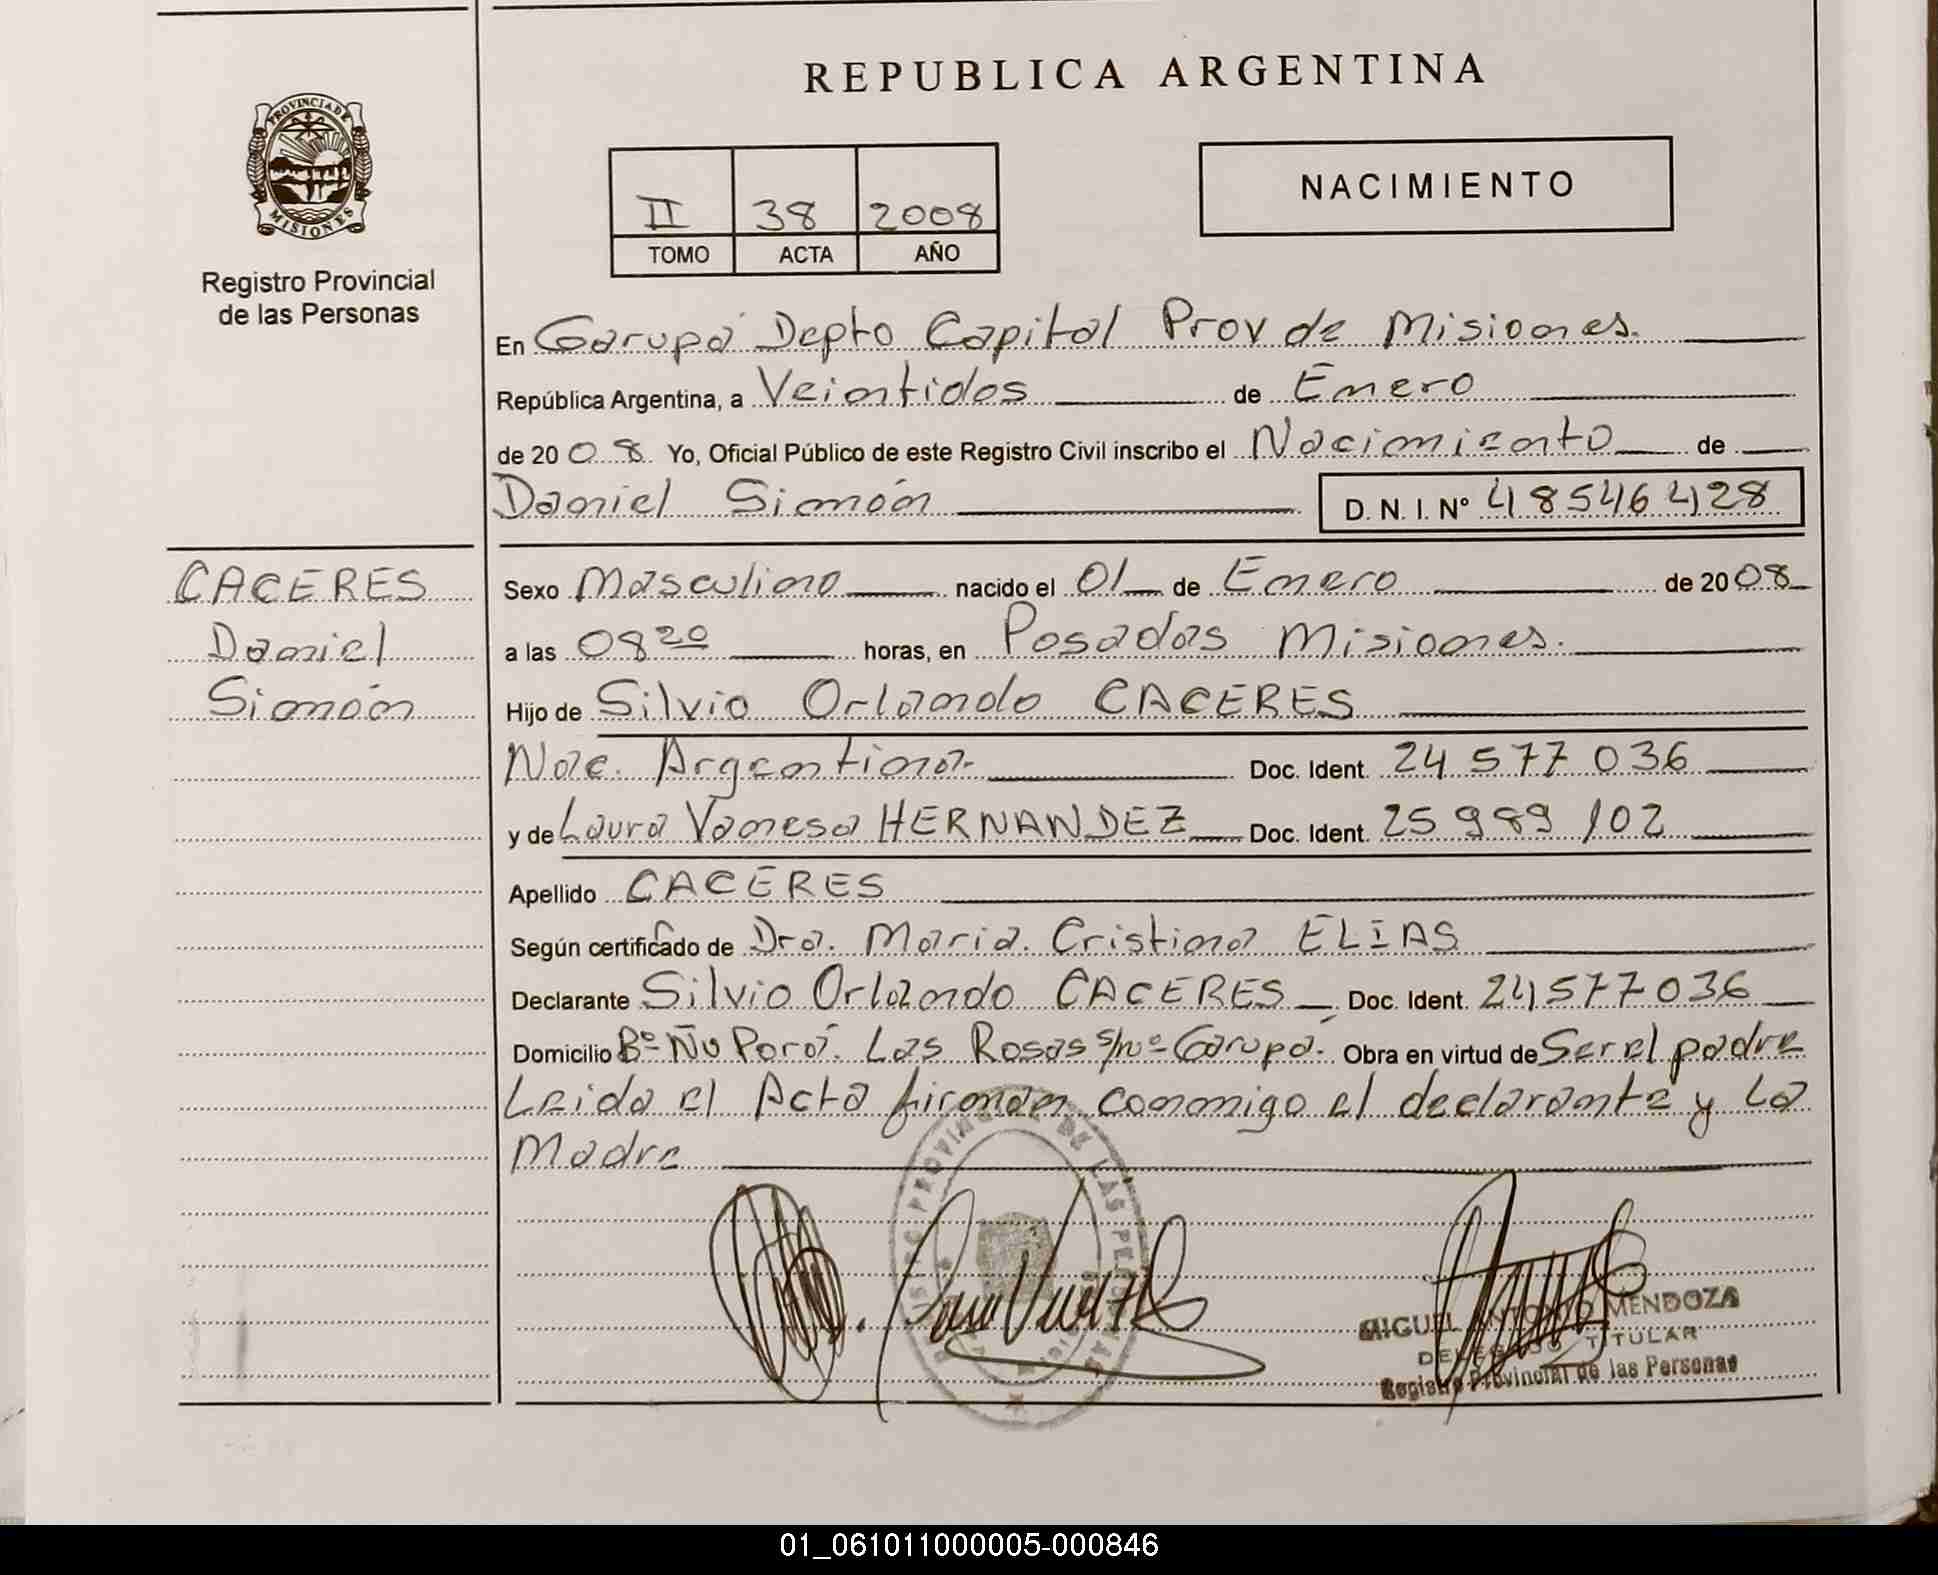 REPUBLICA ARGENTINA
PROVINCIA DE
MISIONES
Registro Provincial
de las Personas
II 38 2008
TOMO ACTA AÑO
NACIMIENTO
En Garupá Depto Capital Prov de Misiones.
República Argentina, a Veintidos de Enero
de 2008 Yo, Oficial Público de este Registro Civil inscribo el Nacimiento de
Daniel Simón D. N. I. Nº 48546428
CACERES
Daniel
Simón
Sexo Masculino nacido el 01 de Enero de 2008
a las 08 20 horas, en Posadas Misiones.
Hijo de Silvio Orlando CACERES
Nac. Argentina- Doc. Ident. 24 577 036
y de Laura Vanesa HERNANDEZ Doc. Ident. 25 989 102
Apellido CACERES
Según certificado de Dra. Maria. Cristina ELIAS
Declarante Silvio Orlando CACERES Doc. Ident. 24577036
Domicilio Bº Ñu Porá. Las Rosas s/nº Garupá. Obra en virtud de Ser el padre
Leida el Acta firman conmigo el declarante y La
Madre
MIGUEL ANTONIO MENDOZA
DELEGADO TITULAR
Registro Provincial de las Personas
01_061011000005-000846